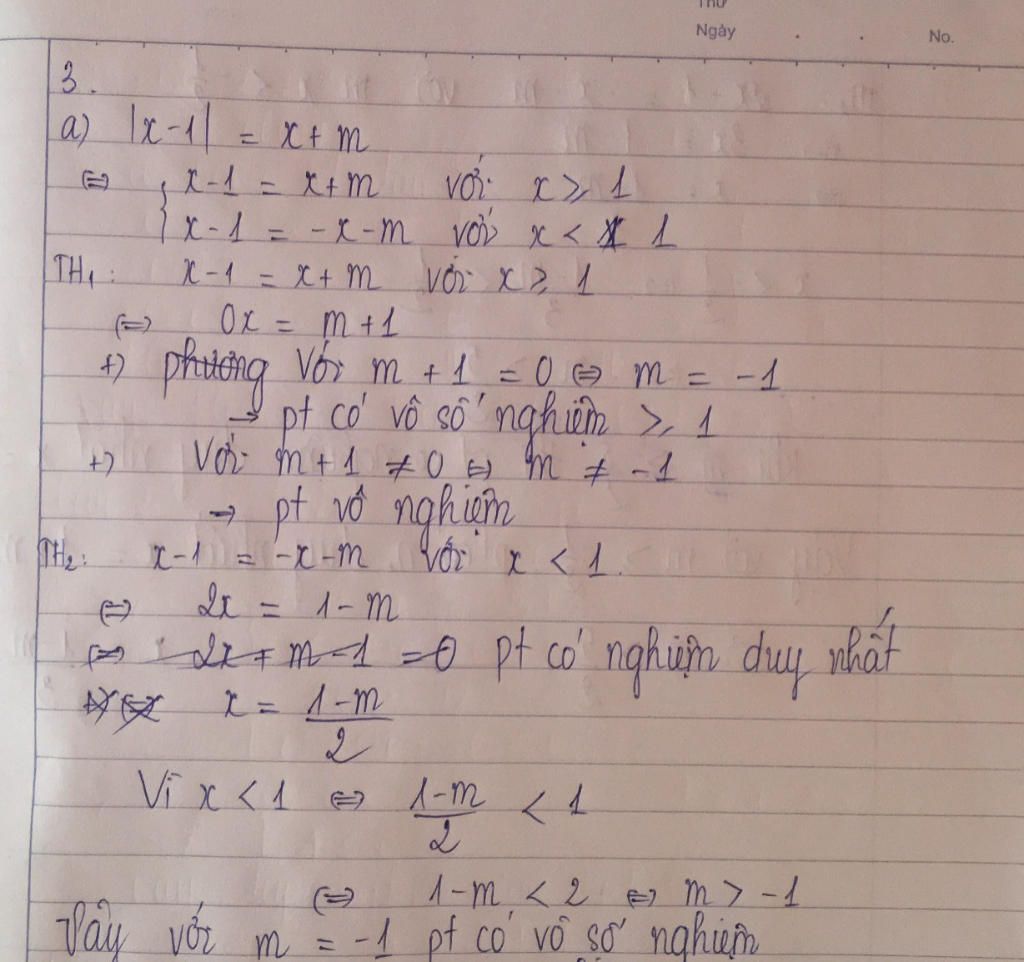 Thứ
Ngày . . No.
3.
a) |x-1| = x+m
⇔ { x-1 = x+m với x ≥ 1
x-1 = -x-m với x < 1
TH1: x-1 = x+m với x ≥ 1
⇔ 0x = m+1
+) phương Với m+1 = 0 ⇔ m = -1
→ pt có vô số nghiệm ≥ 1
+) Với m+1 ≠ 0 ⇔ m ≠ -1
→ pt vô nghiệm
TH2: x-1 = -x-m với x < 1.
⇔ 2x = 1-m
⇔ 2x + m-1 = 0 pt có nghiệm duy nhất
x = (1-m)/2
Vì x < 1 ⇔ (1-m)/2 < 1
⇔ 1-m < 2 ⇔ m > -1
Vậy với m = -1 pt có vô số nghiệm